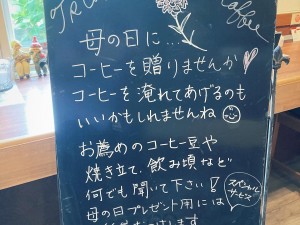 Coffee
母の日に…
コーヒーを贈りませんか
コーヒーを淹れてあげるのも
いいかもしれませんね
お薦めのコーヒー豆や
焼き立て、飲み頃など
何でも聞いて下さい!
スペシャル
サービス
母の日プレゼント用には